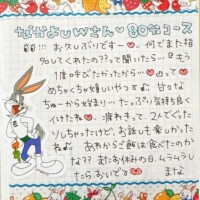 なかよしWさん♡80分コース
!!!! お久しぶりです〜♡ 何でまた指
名してくれたの??って聞いたら『もう
1度呼びたかったから…』♡って♡
めちゃくちゃ嬉しいやつ♪ 甘々な
ちゅーから始まり… たっぷり気持ち良く
イけたね♡。疲れきって、2人でぐった
りしちゃったけど、お話しも楽しかった
ね♪ あれからご飯は食べたのか
な?? またお休みの日、ムラムラし
たらおいで♡ まな